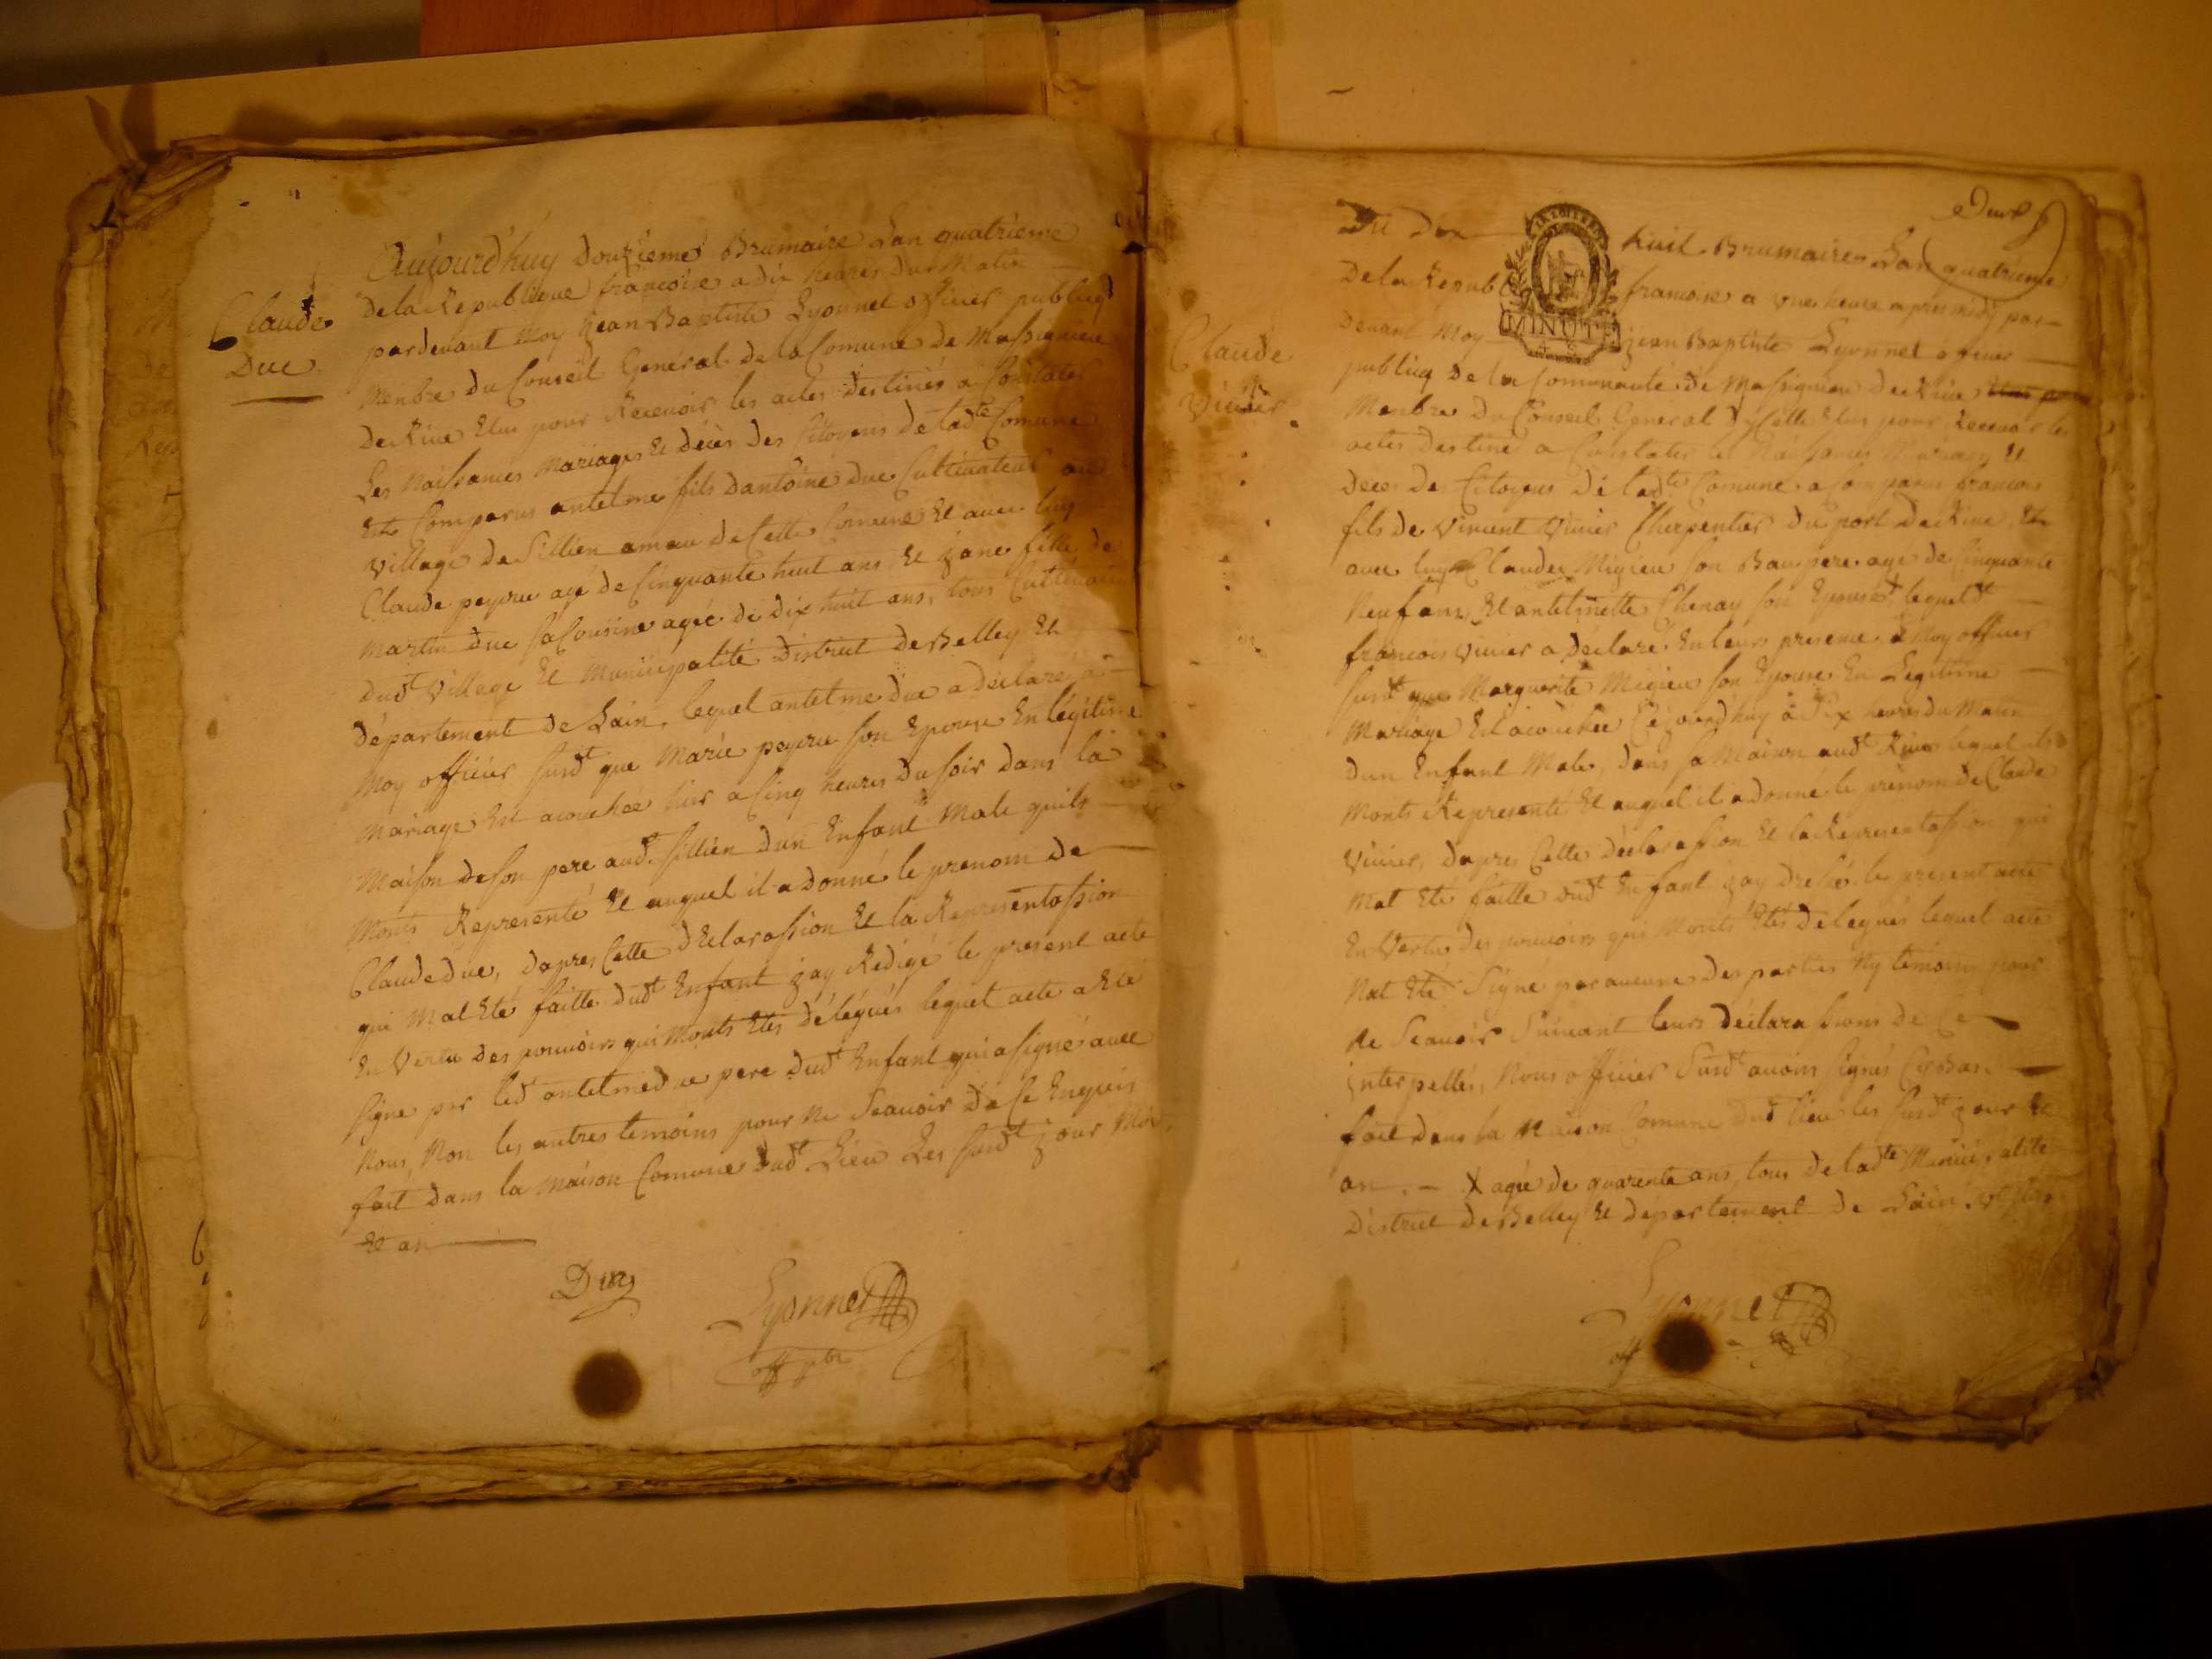 Claude
Duc
Aujourd'huy douzieme Brumaire Lan quatrieme
de la Republique francoise a dix heures du Matin
pardevant Moy Jean Baptiste Lyonnet officier publicq
Menbre du Conseil General de la Comune de Massignieu
de Rive Elu pour Recevoir les actes destinés a Constater
Les Naissances Mariages Et décès des Citoyens de ladte Comune
Est Comparus antelme fils dantoine duc Cultivateur au
village de Sillien ameau de Cette Comune Et avec luy
Claude peyrie agé de Cinquante huit ans Et jane fille de
Martin duc sa Cousine agée de dix huit ans, tous Cultivateurs
dudt Village Et Municipalité district de Belley Et
département de Lain, lequel antelme duc a déclaré à
Moy officier susdt que Marie peyrie son Epouse En légitime
Mariage Est acouchée hier a Cinq heures du soir dans la
Maison de son pere audt Sillien dun Enfant Male quils
Monts Représenté Et auquel il a donné le prenom de
Claude duc, dapres Cette déclarassion Et la Representassion
qui Mat Eté faitte dudt Enfant jay Rédigé le present acte
En Vertu des pouvoirs qui Monts Etés délégués lequel acte a Eté
signe par ledt antelme duc pere dudt Enfant qui a signé avec
Nous, Non les autres temoins pour Ne Scavoir de Ce Enquis
fait dans la Maison Comune dudt Lieu Les susdt jour Mois
Et an
Duc
Lyonnet
off pbc
Deux
Du Dix huit Brumaire Lan quatrieme
De la Republ francoise a une heure apres midy par-
devant Moy jean Baptiste Lyonnet officier
MINUTE
Claude
Vivier
publicq de la Communauté de Massignieu de Rive
Menbre du Conseil General dycelle Elus pour Recevoir les
actes destiné a Constater les Naissances Mariages Et
deces des Citoyens de ladte Comune a Comparus francois
fils de Vincent Vivier Cherpentier du port de Rive, Et
avec luy Claude Migieu son Baupere agé de Cinquante
Neuf ans, Et antelmette Chenay son Epouse X lequeldt
francois Vivier a déclaré En leurs presence à Moy officier
susdt que Marguerite Migieu son Epouse En Legitime
Mariage Est acouchée Cejourdhuy à Six heures du Matin
dun Enfant Male, dans sa Maison audt Rive lequel ils
Monts Représenté Et auquel il a donné le prénom de Claude
Vivier, dapres Cette déclarassion Et la Representassion qui
Mat Eté faitte dudt Enfant jay dressé le present acte
En Vertu des pouvoirs qui Monts Etés delegués lequel acte
Nat Eté Signé par aucune des parties Ny témoins pour
Ne Scavoir Suivant leurs déclarassions de Ce
interpellés, Nous officier Susdt avons Signés Cybas.
fait dans la Maison Comune dudt lieu les susdt jour Et
an. - X agée de quarente ans, tous de ladte Municipalité
District de Belley Et département de Lain
Lyonnet
off